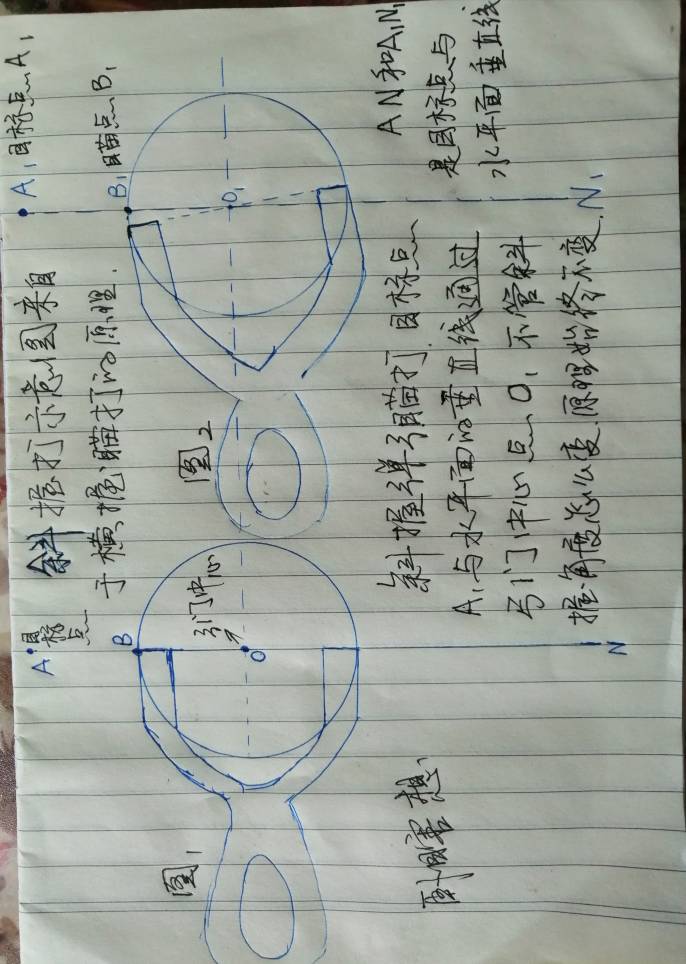 斜握打示意图来自
于横握瞄打的原理.
A
目标点
B
弓门中心
O
N
图1
A₁ 目标点A₁
B₁ 瞄点B₁
O₁
N₁
图2
AN和A₁N₁
是目标点与
水平面垂直线
斜握弹弓瞄打.目标点
A₁与水平面的垂直线通过
弓门中心点O₁ 不管斜
握角度怎么变.原理始终不变.